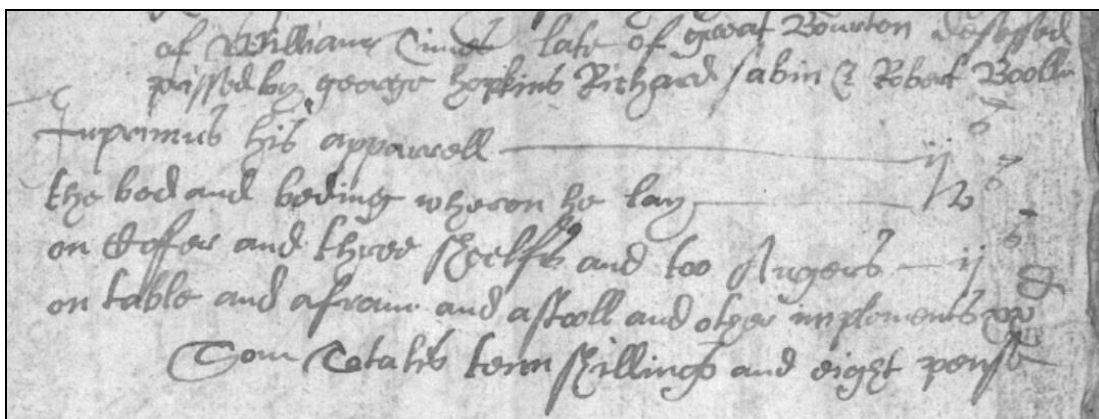 of William Tims late of great Bourton desessed
prissed by george hopkins Richard sabin & Robert
Inprimus his apparrell ij s
the bed and beding wheron he lay v s
on Cofer and three shelfs and too Augers ij s
on table and a fram and a stooll and other implements xx d
Som Totalis tenn shillings and eight pense